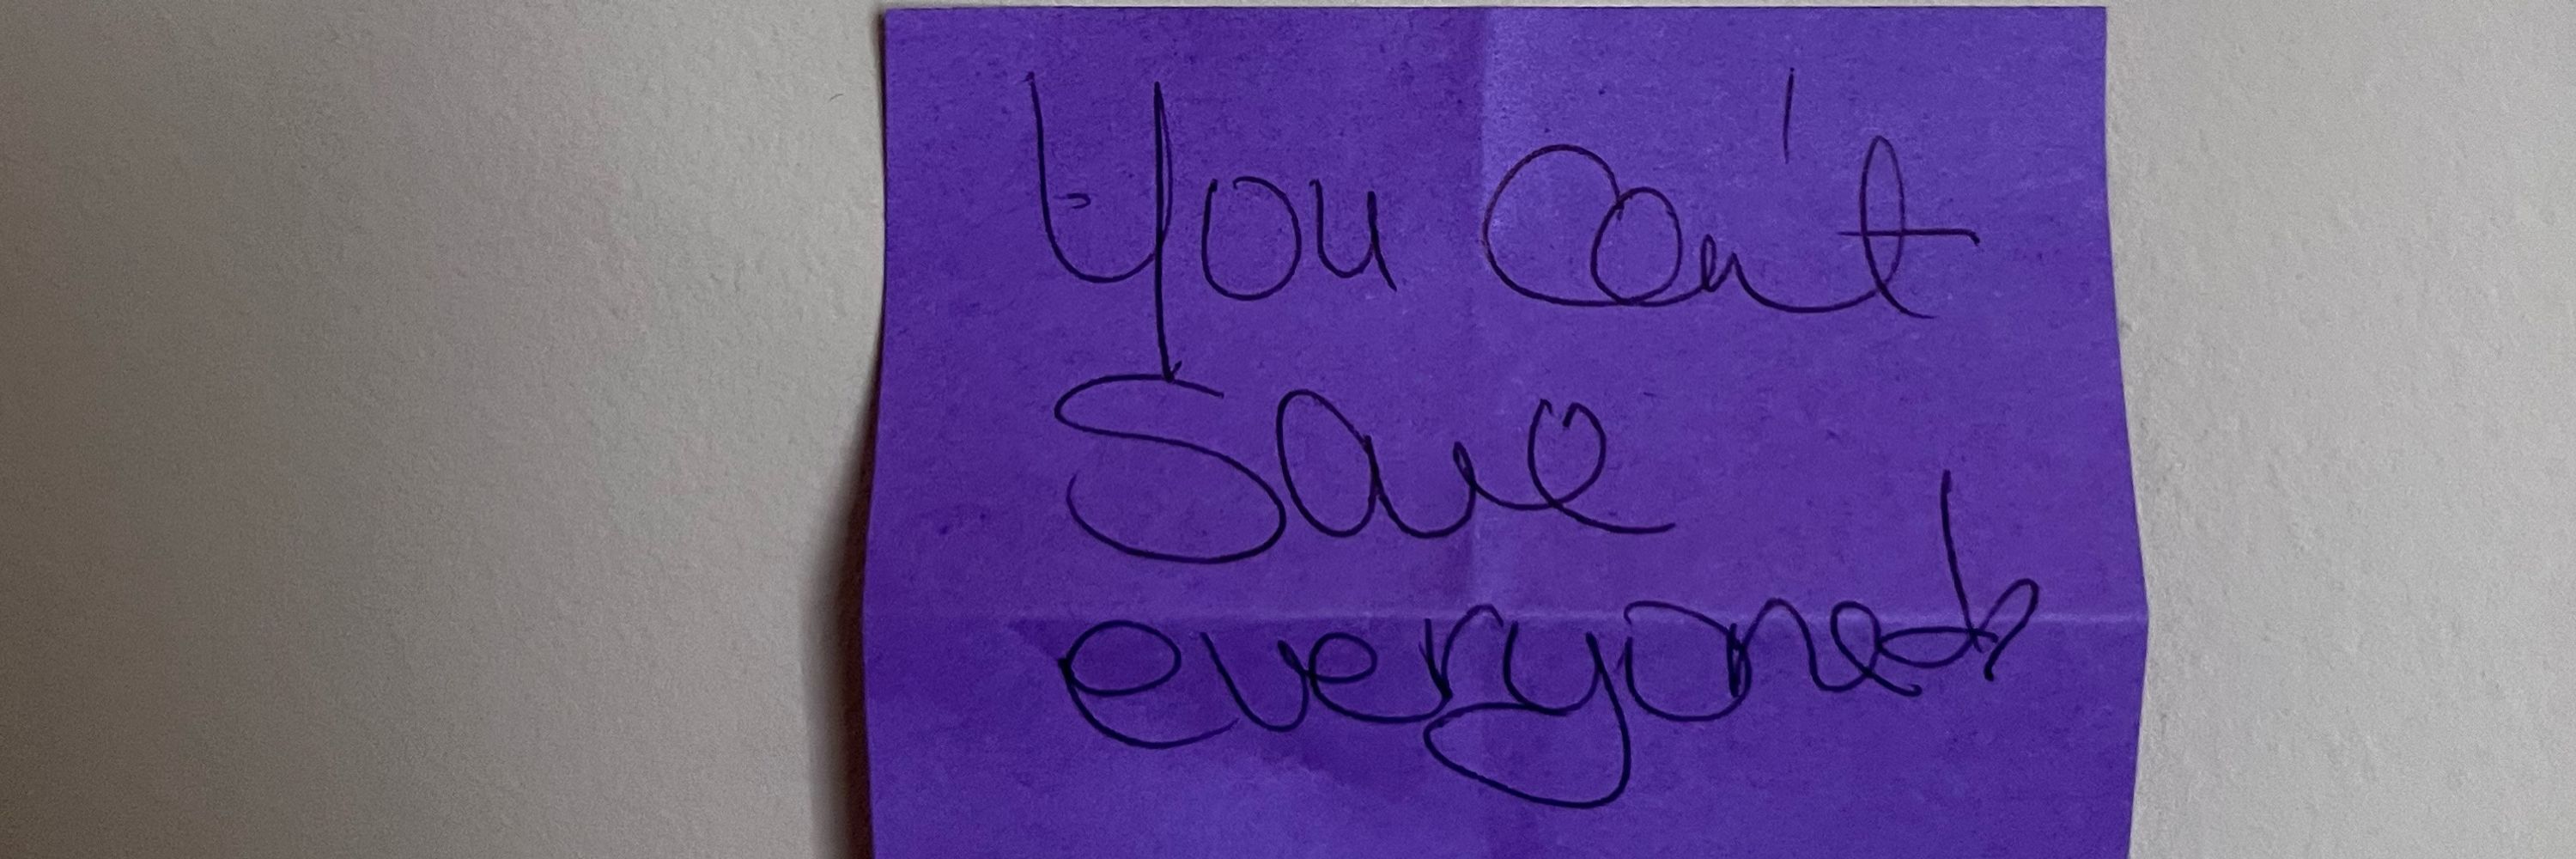 You can't
Save
everyone